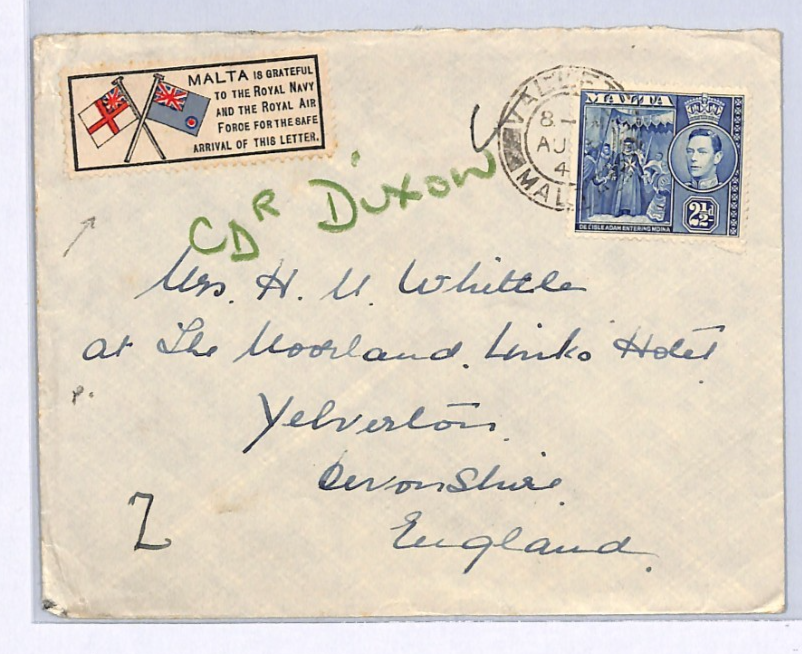 MALTA IS GRATEFUL
TO THE ROYAL NAVY
AND THE ROYAL AIR
FORCE FOR THE SAFE
ARRIVAL OF THIS LETTER.
MALTA
2½d
DE L'ISLE ADAM ENTERING MDINA
8-
AU
4
MAL
CDR DIXON
Mrs. H. M. Whittle
at The Moorland Links Hotel
Yelverton
Devonshire
England.